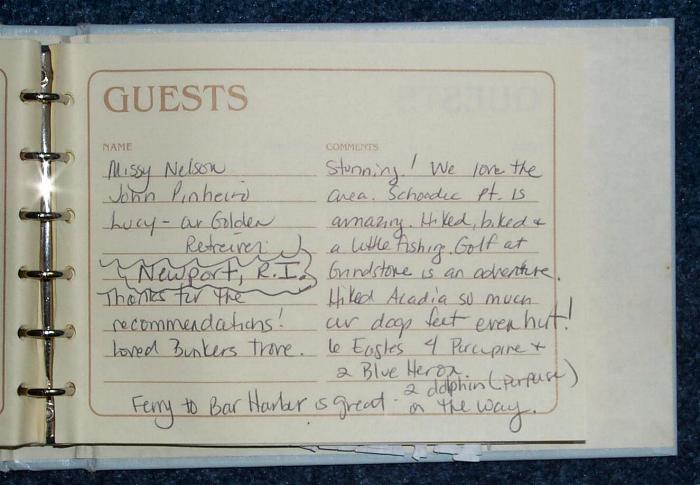 GUESTS
NAME
Missy Nelson
John Pinheiro
Lucy - our Golden
Retreiver
Newport, R.I.
Thanks for the
recommendations!
Loved Bunkers
COMMENTS
Stunning! We love the
area. Schoodic Pt. is
amazing. Hiked, biked +
a little fishing. Golf at
Grindstone is an adventure.
Hiked Acadia so much
our dogs feet even hurt!
6 Eagles 4 Porcupine +
2 Blue Heron.
2 dolphin (porpuse)
Ferry to Bar Harbor is great - on the way.